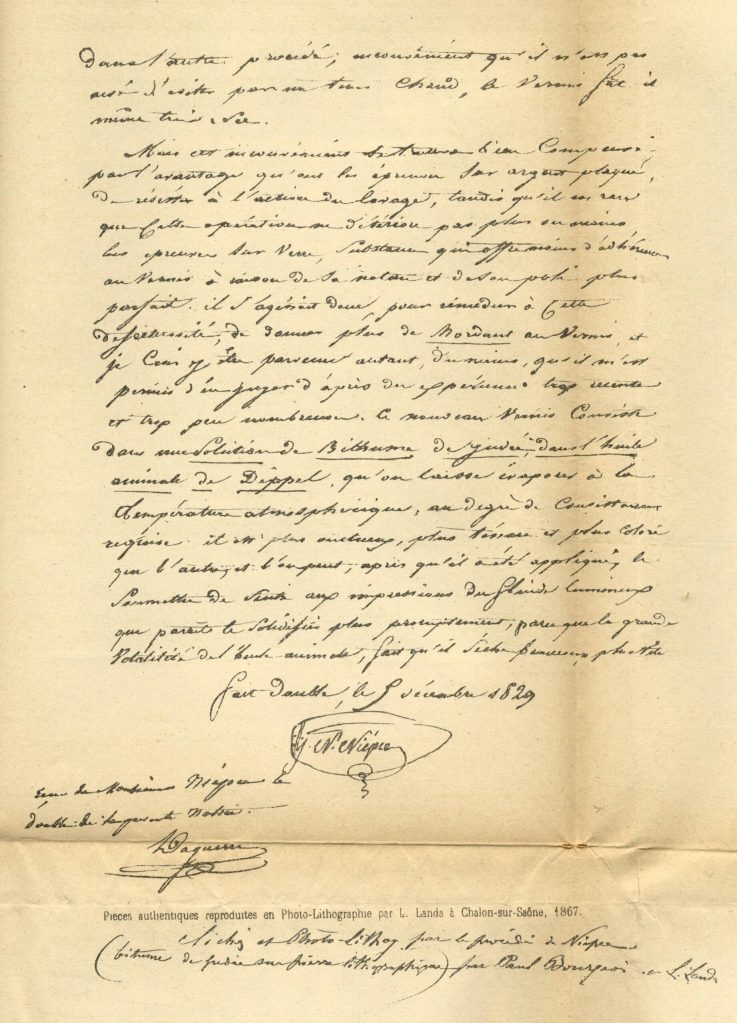 dans l'autre procédé; inconvénient qu'il n'est pas
aisé d'éviter par un tems chaud, le Vernis fût il
même très sec.
Mais cet inconvénient se trouve bien Compensé
par l'avantage qu'ont les épreuves sur argent plaqué,
de résister à l'action du lavage, tandis qu'il est rare
que Cette opération ne détériore pas plus ou moins
les épreuves sur Verre, Substance qui offre moins d'adhérence
au Vernis à raison de sa nature et de son poli plus
parfait. il s'agissait donc, pour remédier à Cette
défectuosité, de donner plus de Mordant au Vernis, et
je Crois y être parvenu autant, du moins, qu'il m'est
permis d'en juger d'après des expériences trop récentes
et trop peu nombreuses. Ce nouveau Vernis Consiste
dans une Solution de Bithume de judée, dans l'huile
animale de Dippel, qu'on laisse évaporer à la
Température atmosphérique, au degré de Consistance
requise. il est plus onctueux, plus ténace et plus coloré
que l'autre, et l'on peut, après qu'il a été appliqué, le
Soumettre de Suite aux impressions du fluide lumineux
qui paraît le Solidifier plus promptement, parce que la grande
Volatilité de l'huile animale, fait qu'il Sèche beaucoup plus Vîte
fait Double, le 5 décembre 1829
J. N. Niépce
de Monsieur Niépce le
double de la présente Notice.
Daguerre
Pieces authentiques reproduites en Photo-Lithographie par L. Landa à Chalon-sur-Saône, 1867.
Clichés et Photo-Lithog par le procédé de Niépce
(bitume de Judée sur pierre lithographique) par Paul Bourgeois et L. Landa